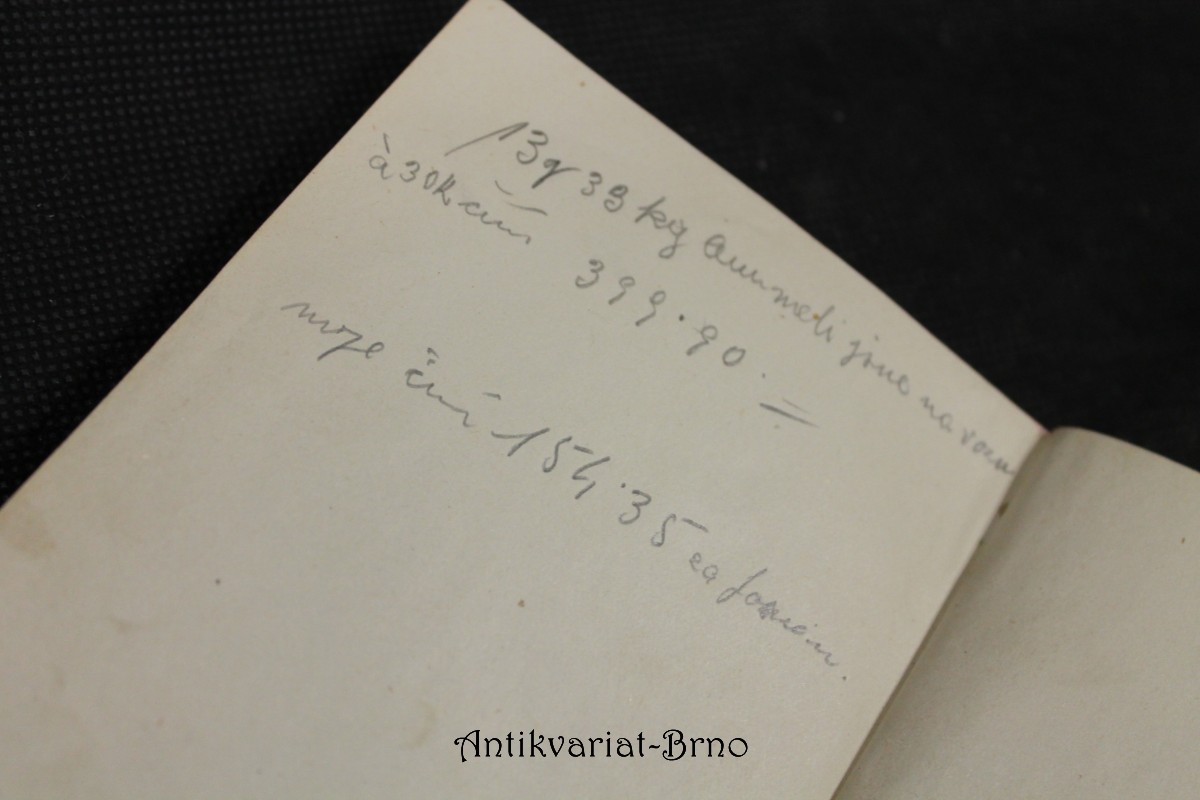 13q 33 kg měli jsme na vozu
à 30 K činí 399.90.=
moje činí 154.35 za
Antikvariat-Brno